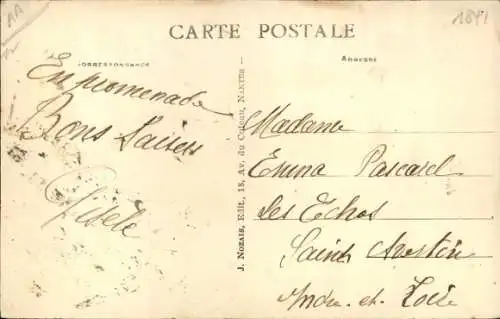 AA
1841
CARTE POSTALE
CORRESPONDANCE
ADRESSE
En promenade
Bons Baisers
Gisèle
J. Nozais, Edit., 15, Av. du Coteau, Nantes
Madame
Emma Pascarel
Les Echos
Saint Avertin
Indre-et-Loire